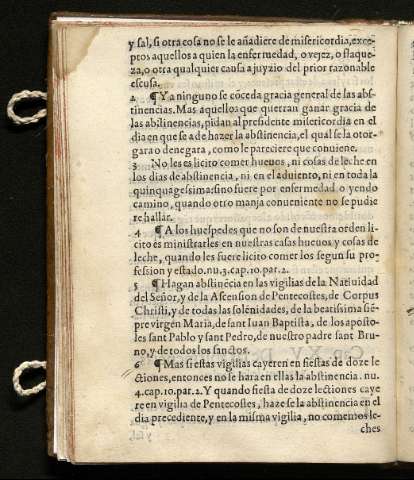 y sal, si otra cosa no se le añadiere de misericordia, exce-
ptos aquellos a quien la enfermedad, o vejez, o flaque-
za, o otra qualquier causa a juyzio del prior razonable
escusa.
2 ¶ Y a ninguno se cõceda gracia general de las abs-
tinencias. Mas aquellos que quieran ganar gracia de
las abstinencias, pidan al presidente misericordia en el
dia en que se a de hazer la abstinencia, el qual se la otor-
gara o denegara, como le pareciere que conuiene.
3 No les es licito comer hueuos, ni cosas de leche en
los dias de abstinencia, ni en el aduiento, ni en toda la
quinquagessima: sino fuere por enfermedad o yendo
camino, quando otro manja conueniente no se pudie
re hallar.
4 ¶ A los huespedes que no son de nuestra orden li-
cito es ministrarles en nuestras casas hueuos y cosas de
leche, quando les fuere licito comer los segun su pro-
fession y estado. nu. 3. cap. 10. par. 2.
5 ¶ Hagan abstinẽcia en las vigilias de la Natiuidad
del Señor, y de la Ascension de Pentecostes, de Corpus
Christi, y de todas las solẽnidades, de la beatissima siẽ-
pre virgen Maria, de sant Iuan Baptista, de los aposto-
les sant Pablo y sant Pedro, de nuestro padre sant Bru-
no, y de todos los sanctos.
6 ¶ Mas si estas vigilias cayeren en fiestas de doze le
ctiones, entonces no se hara en ellas la abstinencia. nu.
4. cap. 10. par. 2. Y quando fiesta de doze lectiones caye
re en vigilia de Pentecostes, haze se la abstinencia en el
dia precediente, y en la misma vigilia, no comemos le-
ches